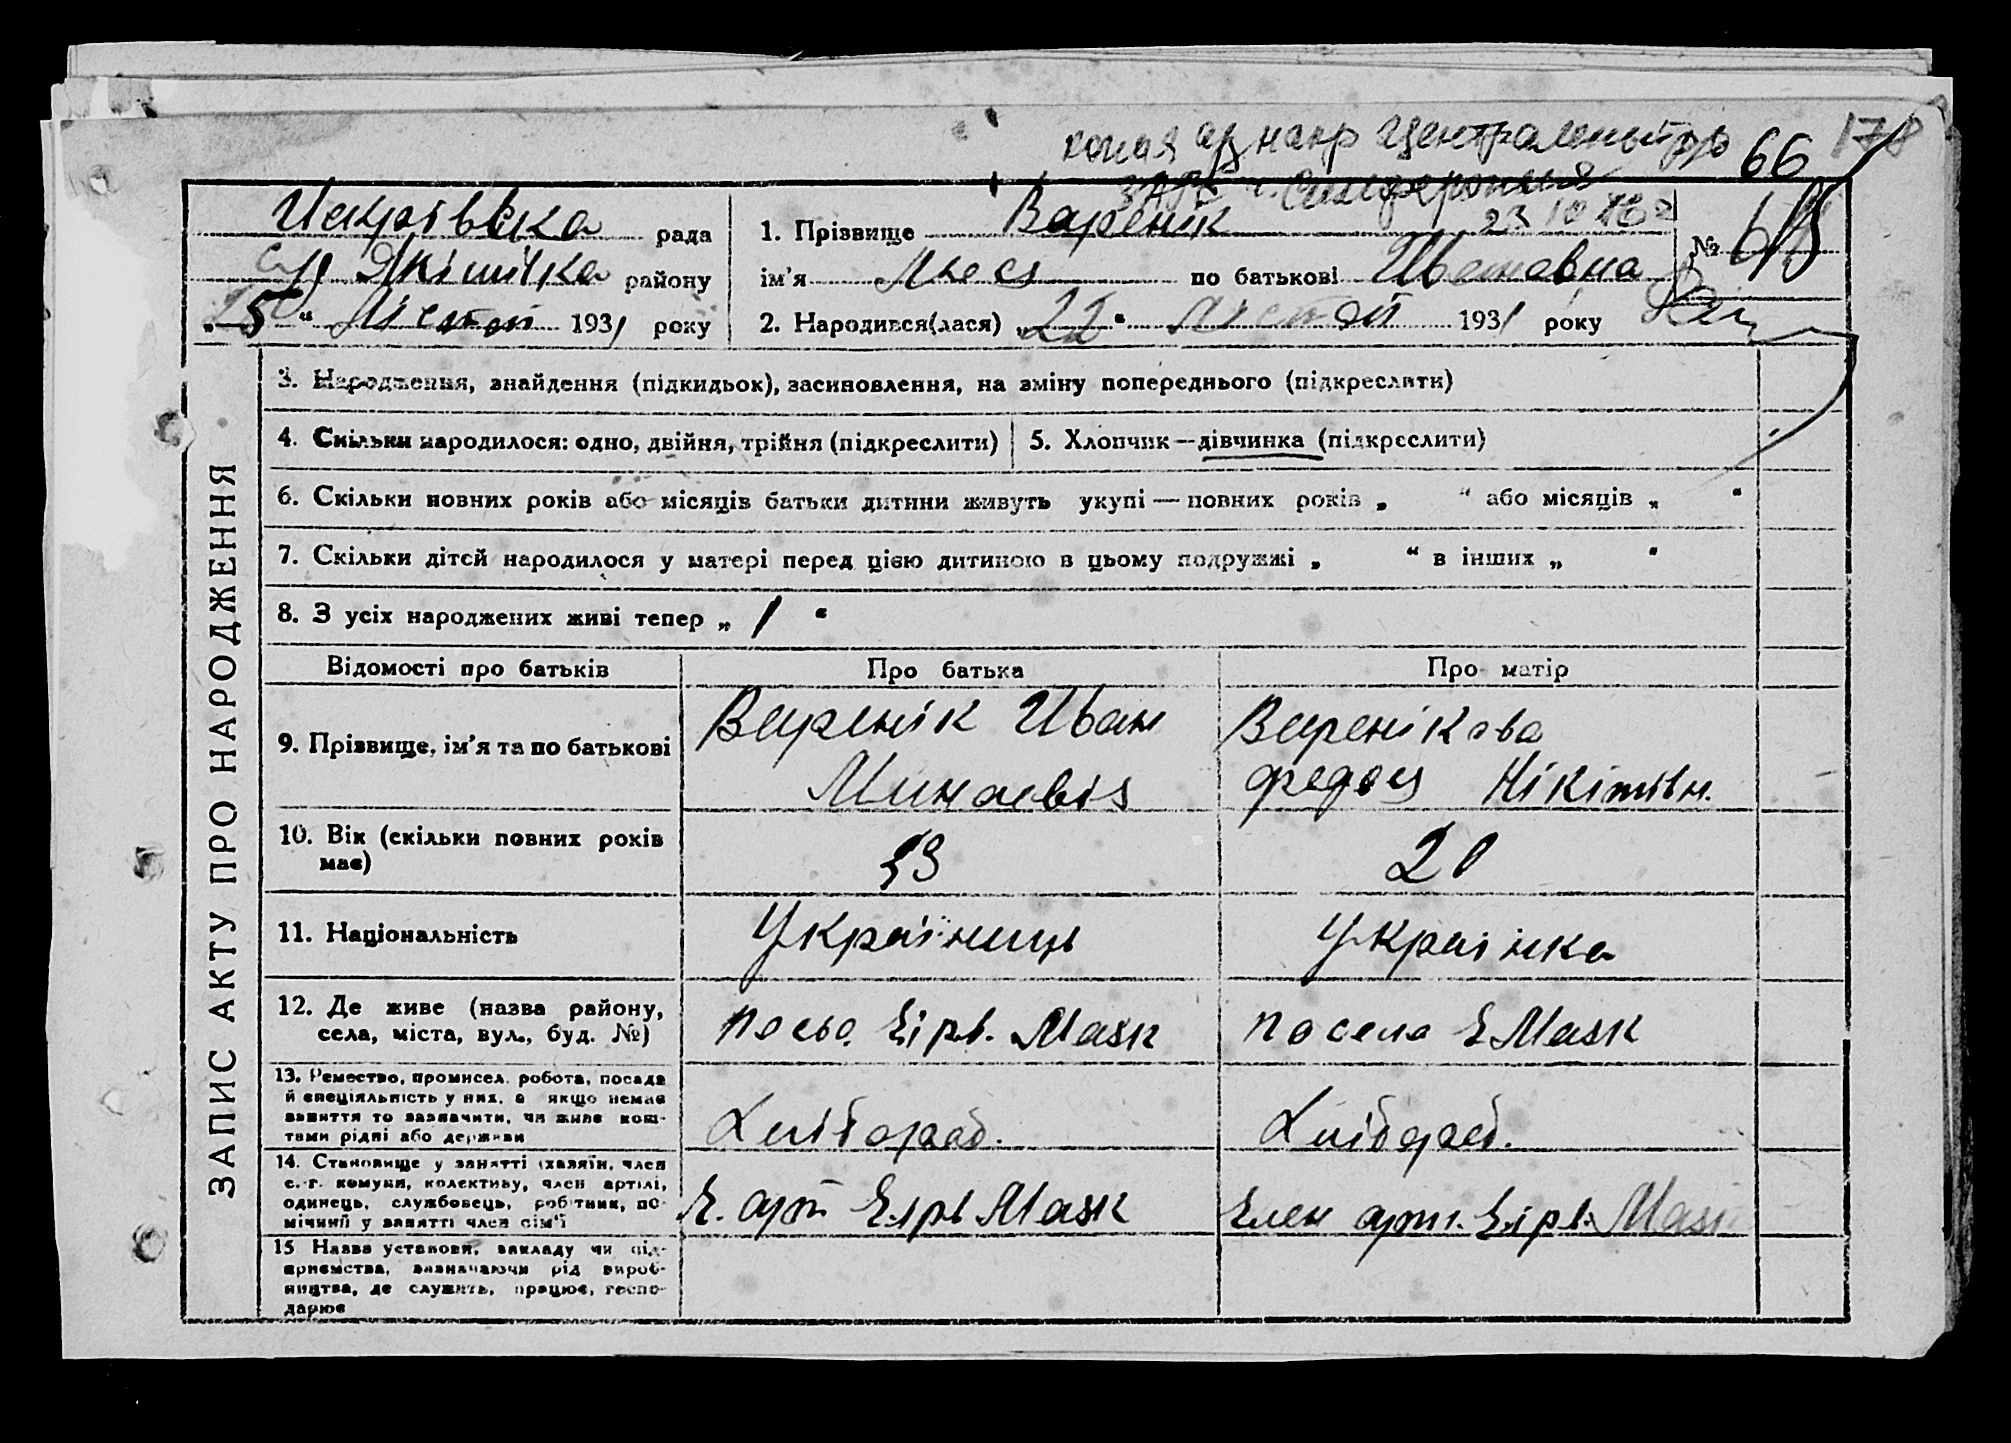 копия
направ Центральный
ЗАГС г. Симферополя
66 178
рада
1. Прізвище Вареник 23
№
району
ім'я по батькові Ивановна
„ 5 “ Листоп 1931 року
2. Народився(лася) „22“ листоп 1931 року
ЗАПИС АКТУ ПРО НАРОДЖЕННЯ
3. Народження, знайдення (підкидьок), засиновлення, на зміну попереднього (підкреслити)
4. Скільки народилося: одно, двійня, трійня (підкреслити)
5. Хлопчик—дівчинка (підкреслити)
6. Скільки повних років або місяців батьки дитини живуть укупі — повних років „ “ або місяців „ “
7. Скільки дітей народилося у матері перед цією дитиною в цьому подружжі „ “ в інших „ “
8. З усіх народжених живі тепер „ 1 “
Відомості про батьків Про батька Про матір
9. Прізвище, ім'я та по батькові
Вареник Иван
Минаевіч
Вареникова
Федося Нікітівн.
10. Вік (скільки повних років
має)
20
11. Національність
Україниць
Українка
12. Де живе (назва району,
села, міста, вул., буд. №)
Маяк
по села Маяк
13. Ремество, промисел. робота, посада
й спеціяльність у них, а якщо немає
заняття то зазначити, чи живе кош-
тами рідні або держави
Хлібороб.
Хлібороб.
14. Становище у занятті (хазяїн, член
с.-г. комуни, колективу, член артілі,
одинець, службовець, робітник, по-
мічний у занятті член сім'ї
Ч. арт Маяк
Член арт. Маяк
15 Назва установи, закладу чи під-
приємства, зазначаючи рід вироб-
ництва, де служить, працює, госпо-
дарює